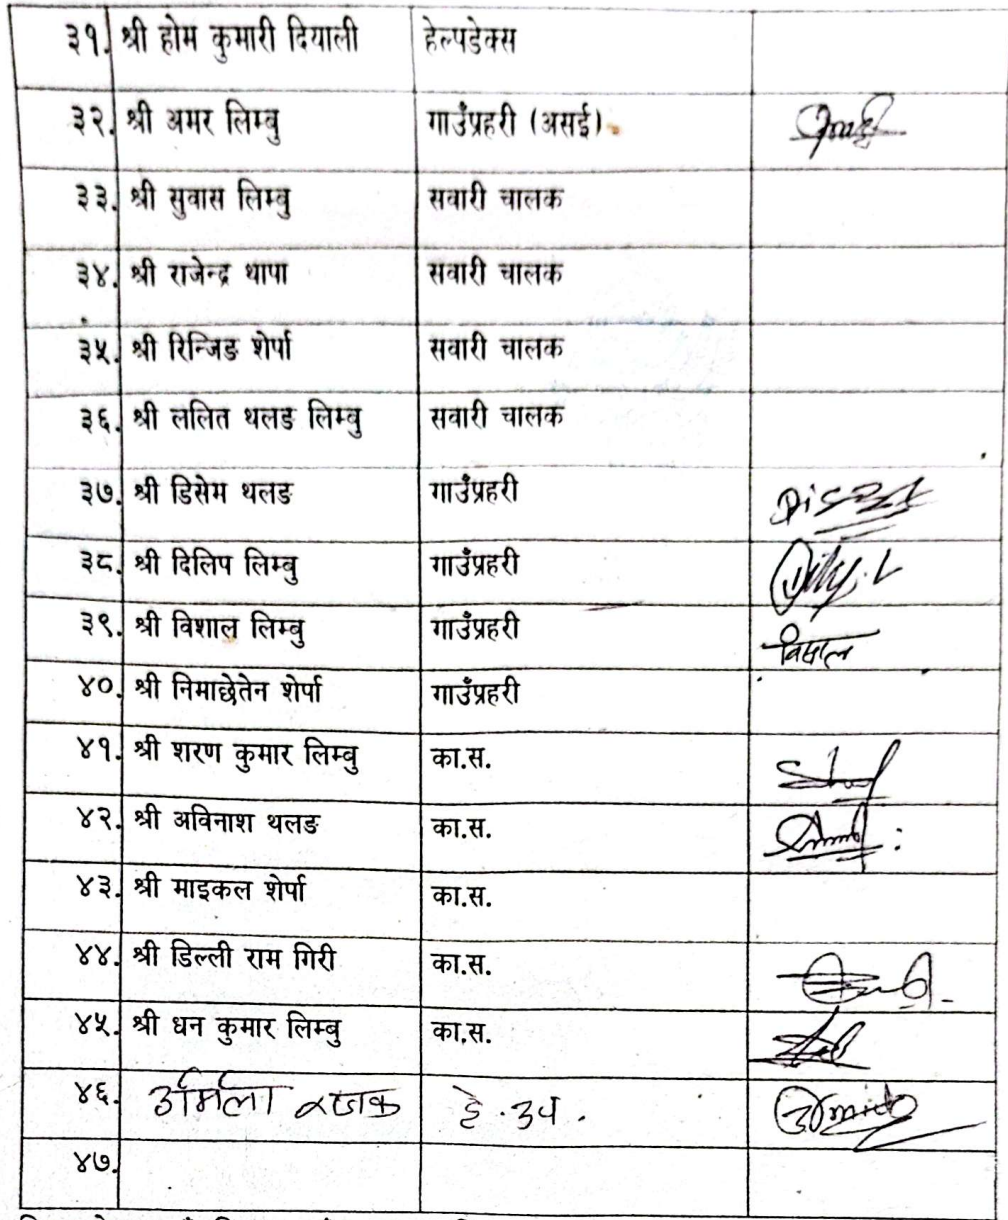 ३१. श्री होम कुमारी दियाली हेल्पडेक्स
३२. श्री अमर लिम्बु गाउँप्रहरी (असई)
३३. श्री सुवास लिम्बु सवारी चालक
३४. श्री राजेन्द्र थापा सवारी चालक
३५. श्री रिन्जिङ शेर्पा सवारी चालक
३६. श्री ललित थलङ लिम्बु सवारी चालक
३७. श्री डिसेम थलङ गाउँप्रहरी
३८. श्री दिलिप लिम्बु गाउँप्रहरी
३९. श्री विशाल लिम्बु गाउँप्रहरी
४०. श्री निमाछेतेन शेर्पा गाउँप्रहरी
४१. श्री शरण कुमार लिम्बु का.स.
४२. श्री अविनाश थलङ का.स.
४३. श्री माइकल शेर्पा का.स.
४४. श्री डिल्ली राम गिरी का.स.
४५. श्री धन कुमार लिम्बु का.स.
४६. उर्मिला
४७.